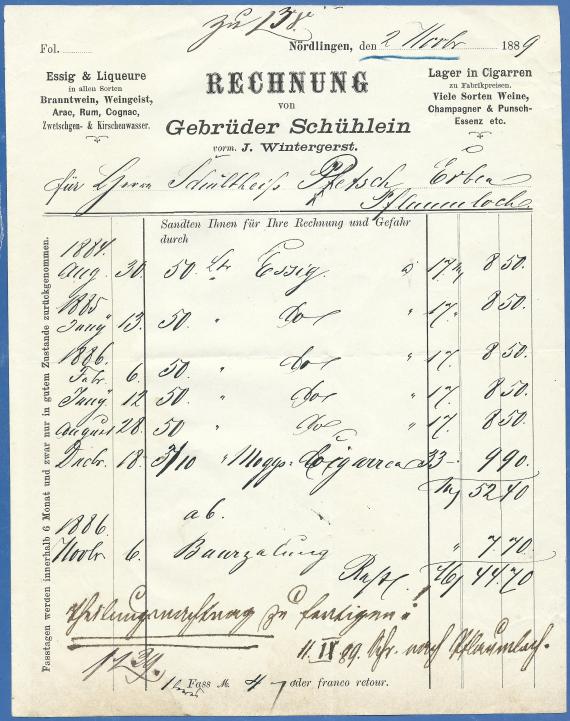 zu 138.
Fol.
Nördlingen, den 2 Novbr 1889
Essig & Liqueure
in allen Sorten
Branntwein, Weingeist,
Arac, Rum, Cognac,
Zwetschgen- & Kirschenwasser.
RECHNUNG
von
Gebrüder Schühlein
vorm. J. Wintergerst.
Lager in Cigarren
zu Fabrikpreisen.
Viele Sorten Weine,
Champagner & Punsch-
Essenz etc.
für Herrn Schultheiß Pfetsch Erben
Pflaumloch.
Sandten Ihnen für Ihre Rechnung und Gefahr
durch
Fasstagen werden innerhalb 6 Monat und zwar nur in gutem Zustande zurückgenommen.
1884.
Aug. 30. 50. Ltr Essig a 17. 8 50.
1885
Juny 13. 50. " do 17. 8 50.
1886.
Febr. 6. 50. " do 17. 8 50.
Juny 12 50. " do 17. 8 50.
August 28. 50 " do 17. 8 50.
Decbr. 18. 3/10 Cigarren 33 – 9 90.
M 52 40
ab.
1886
Novbr 6. Baarzalung " 7.70.
Rest M 44.70
zu fertigen!
11. IX 89. nach Pflaumloch.
Fass M. 4 oder franco retour.